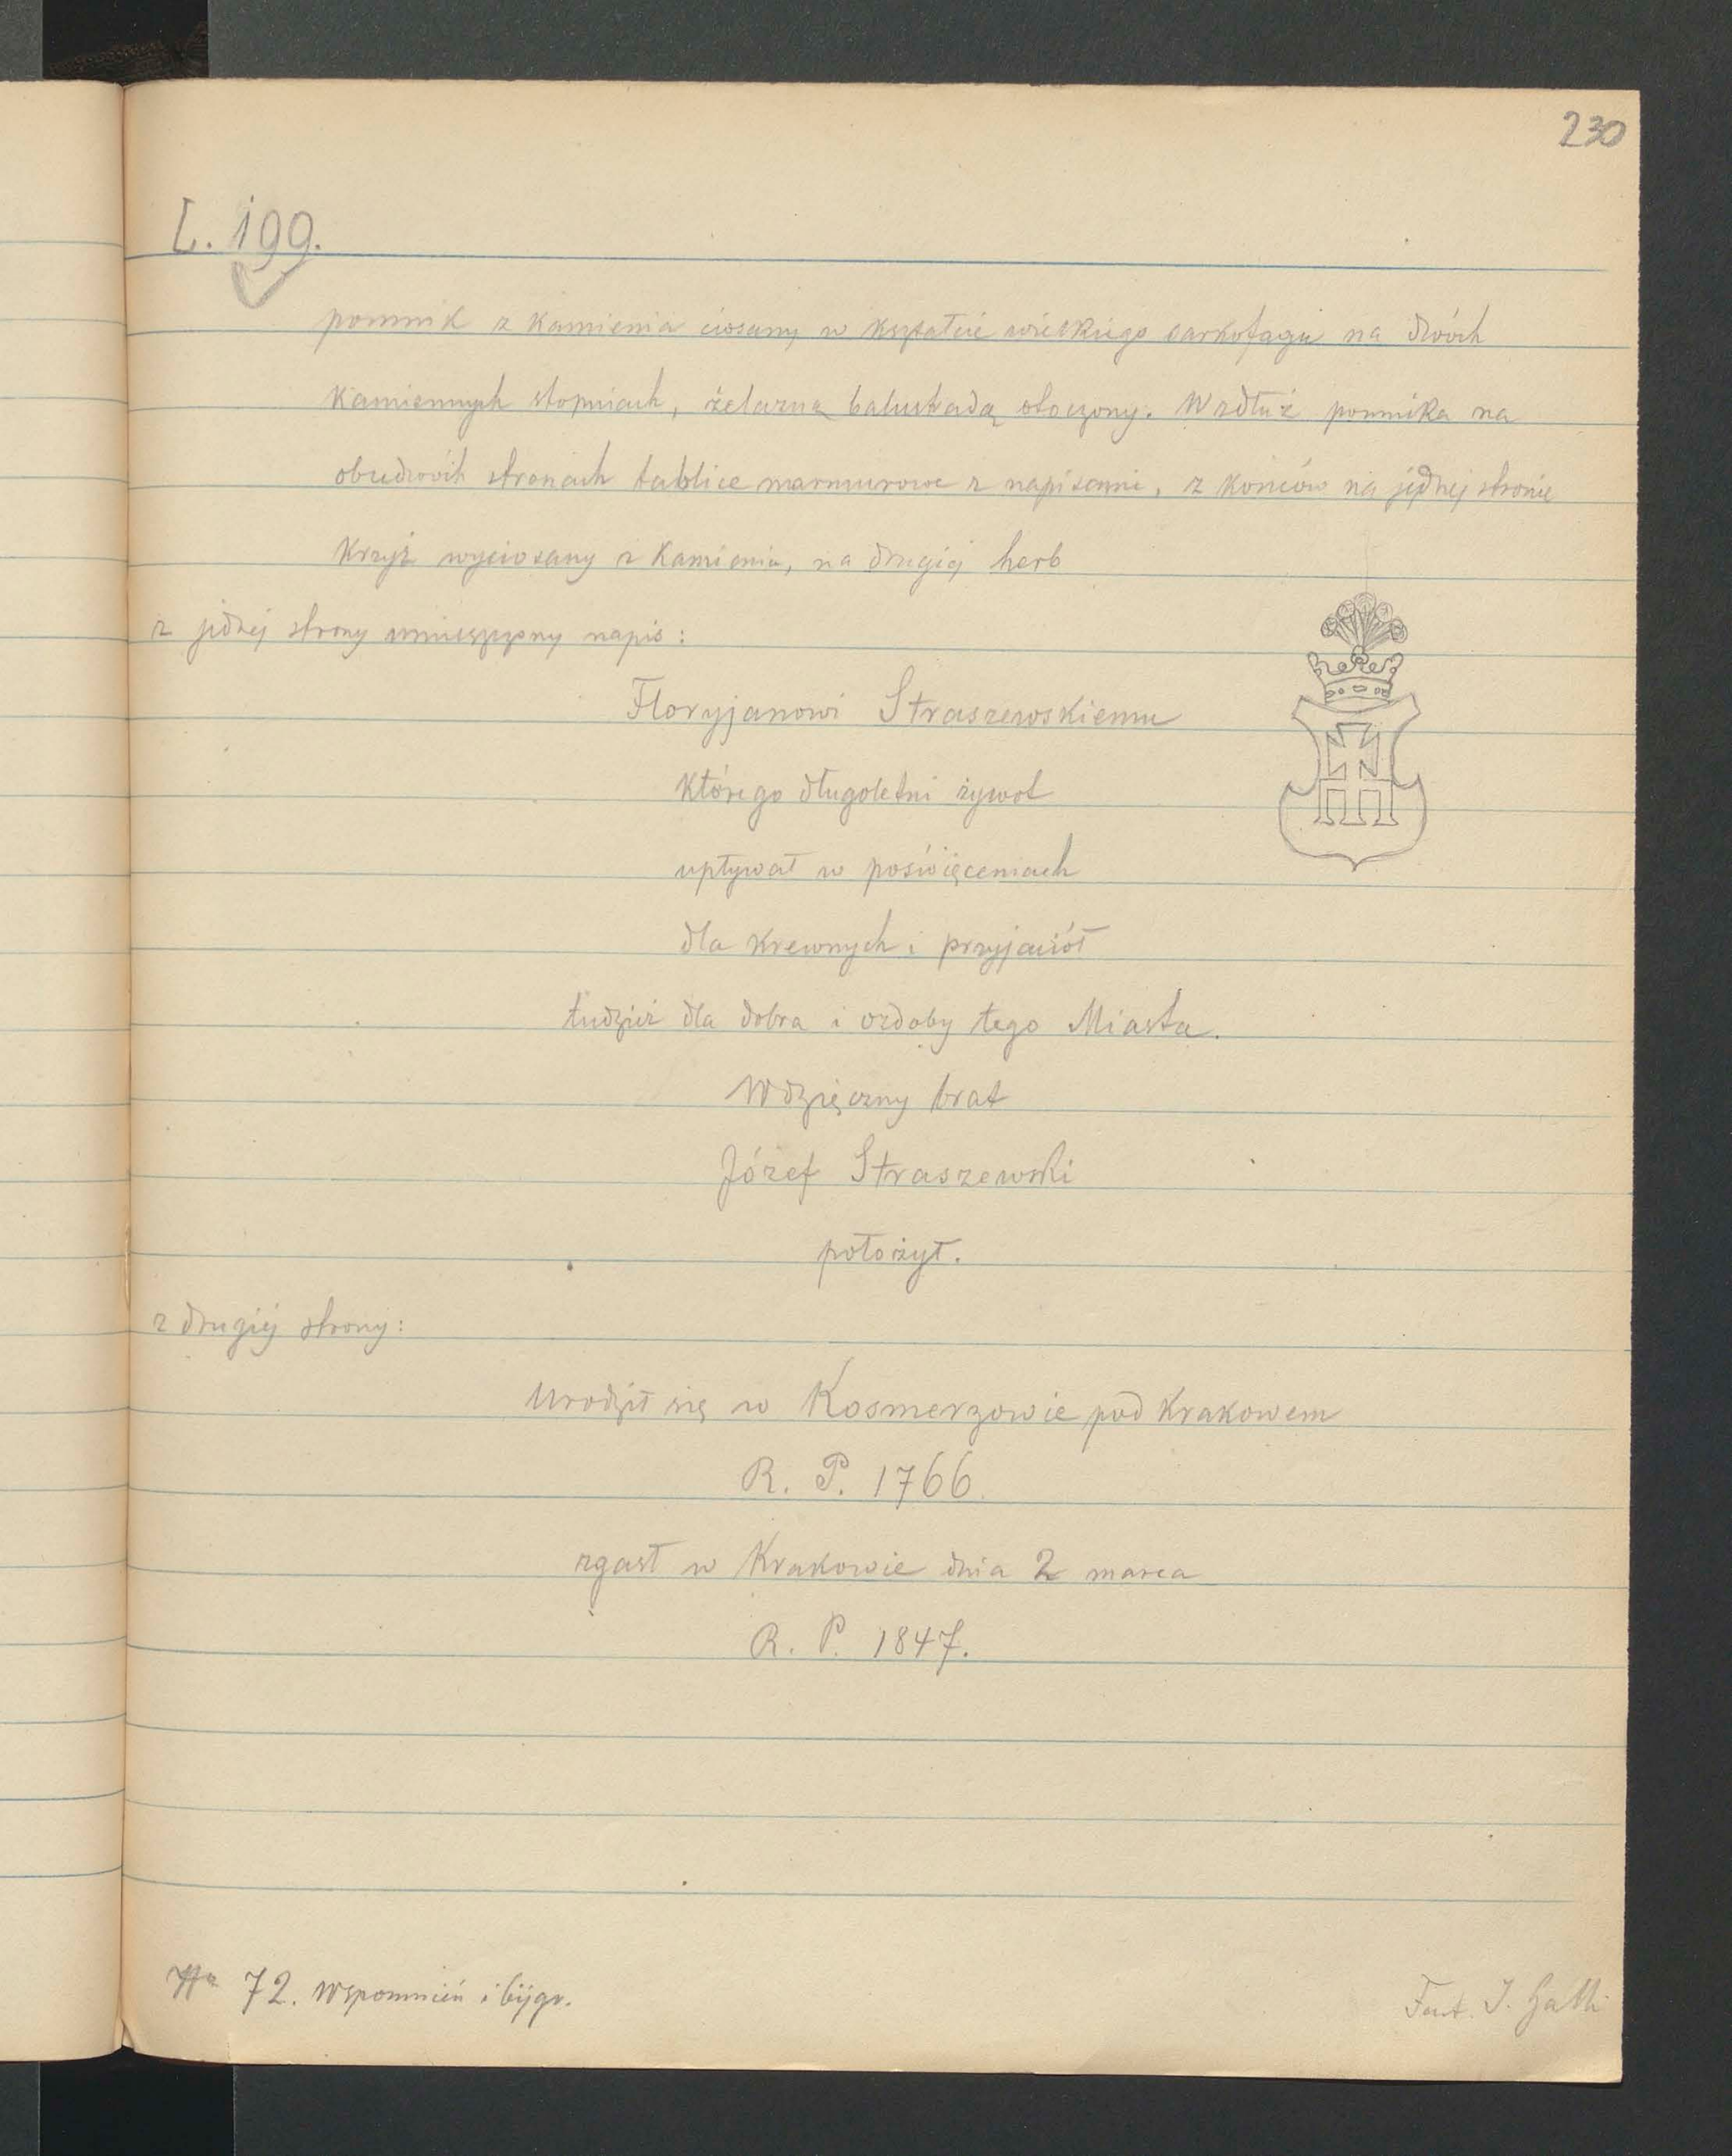 230
L. 199.
pomnik z Kamienia ciosany w kształcie wielkiego sarkofagu na dwóch
Kamiennych stopniach, żelazną balustradą otoczony. Wzdłuż pomnika na
obudwóch stronach tablice marmurowe z napisami, z końców na jednej stronie
Krzyż wyciosany z Kamienia, na drugiej herb
z jednej strony umieszczony napis:
Floryjanowi Straszewskiemu
którego długoletni żywot
upływał w poświęceniach
dla Krewnych i przyjaciół
tudzież dla dobra i ozdoby tego Miasta.
Wdzięczny brat
Józef Straszewski
położył.
z drugiej strony:
urodził się w Kosmerzowie pod Krakowem
R. P. 1766
zgasł w Krakowie dnia 2 marca
R. P. 1847.
72. Wspomnień i bijgr.